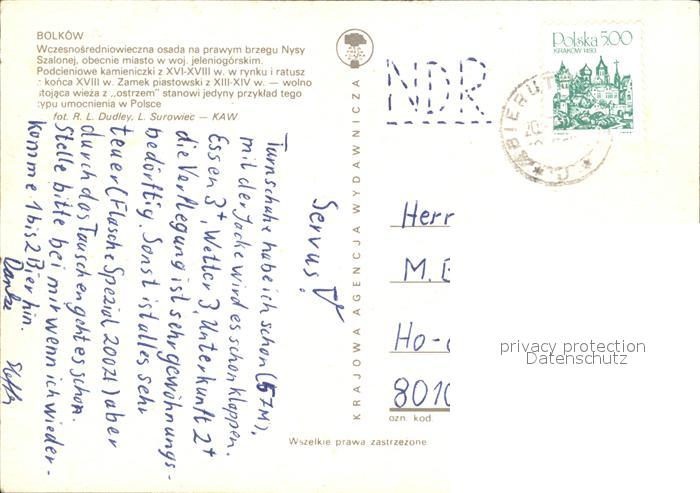 BOLKÓW
Wczesnośredniowieczna osada na prawym brzegu Nysy
Szalonej, obecnie miasto w woj. jeleniogórskim.
Podcieniowe kamieniczki z XVI-XVIII w. w rynku i ratusz
z końca XVIII w. Zamek piastowski z XIII-XIV w. — wolno
stojąca wieża z „ostrzem" stanowi jedyny przykład tego
typu umocnienia w Polsce
fot. R. L. Dudley, L. Surowiec — KAW
Servus!
Turnschuhe habe ich schon (57M),
mit der Jacke wird es schon klappen.
Essen 3+, Wetter 3, Unterkunft 2+
die Verflegung ist sehr gewöhnungs-
bedürftig. Sonst ist alles sehr
teuer (Flasche Spezial 200Zl) aber
durch das Tauschen geht es schon.
Stelle bitte bei mir wenn ich wieder-
komme 1 bis 2 Bier hin.
Danke
Steffen
KRAJOWA AGENCJA WYDAWNICZA
NDR
Polska 5.00
KRAKÓW 1493
BIERUT
Herr
M.
Ho-
801
ozn. kod.
Wszelkie prawa zastrzeżone
privacy protection
Datenschutz